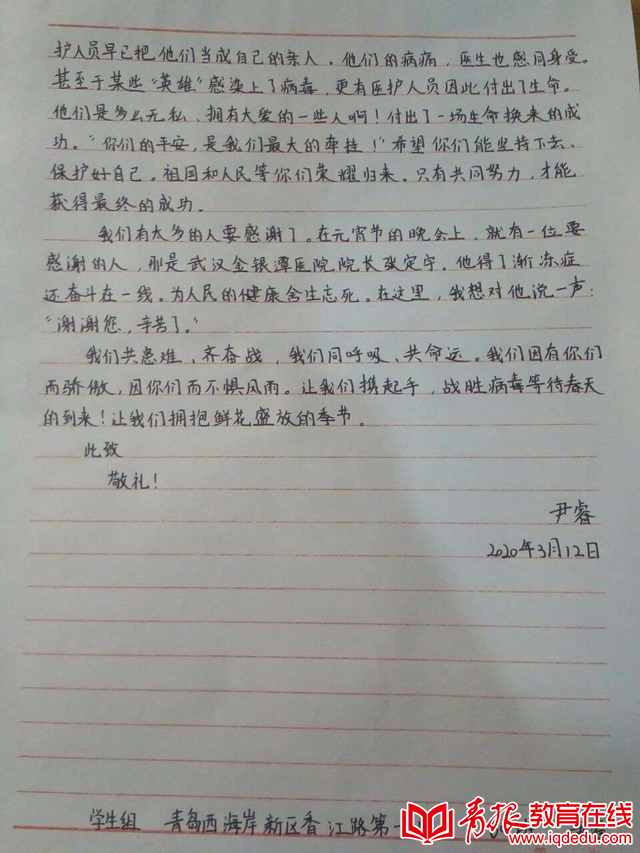 护人员早已把他们当成自己的亲人，他们的病痛，医生也感同身受。
甚至于某些“英雄”感染上了病毒，更有医护人员因此付出了生命。
他们是多么无私、拥有大爱的一些人啊！付出了一场生命换来的成
功。“你们的平安，是我们最大的牵挂！”希望你们能坚持下去、
保护好自己。祖国和人民等你们荣耀归来。只有共同努力，才能
获得最终的成功。
我们有太多的人要感谢了。在元宵节的晚会上，就有一位要
感谢的人，那是武汉金银潭医院院长张定宁。他得了渐冻症
还奋斗在一线。为人民的健康舍生忘死。在这里，我想对他说一声：
“谢谢您，辛苦了。”
我们共患难、齐奋战，我们同呼吸、共命运。我们因有你们
而骄傲，因你们而不惧风雨。让我们携起手，战胜病毒等待春天
的到来！让我们拥抱鲜花盛放的季节。
此致
敬礼！
尹睿
2020年3月12日
学生组 青岛西海岸新区香江路第一
青报教育在线
www.iqdedu.com